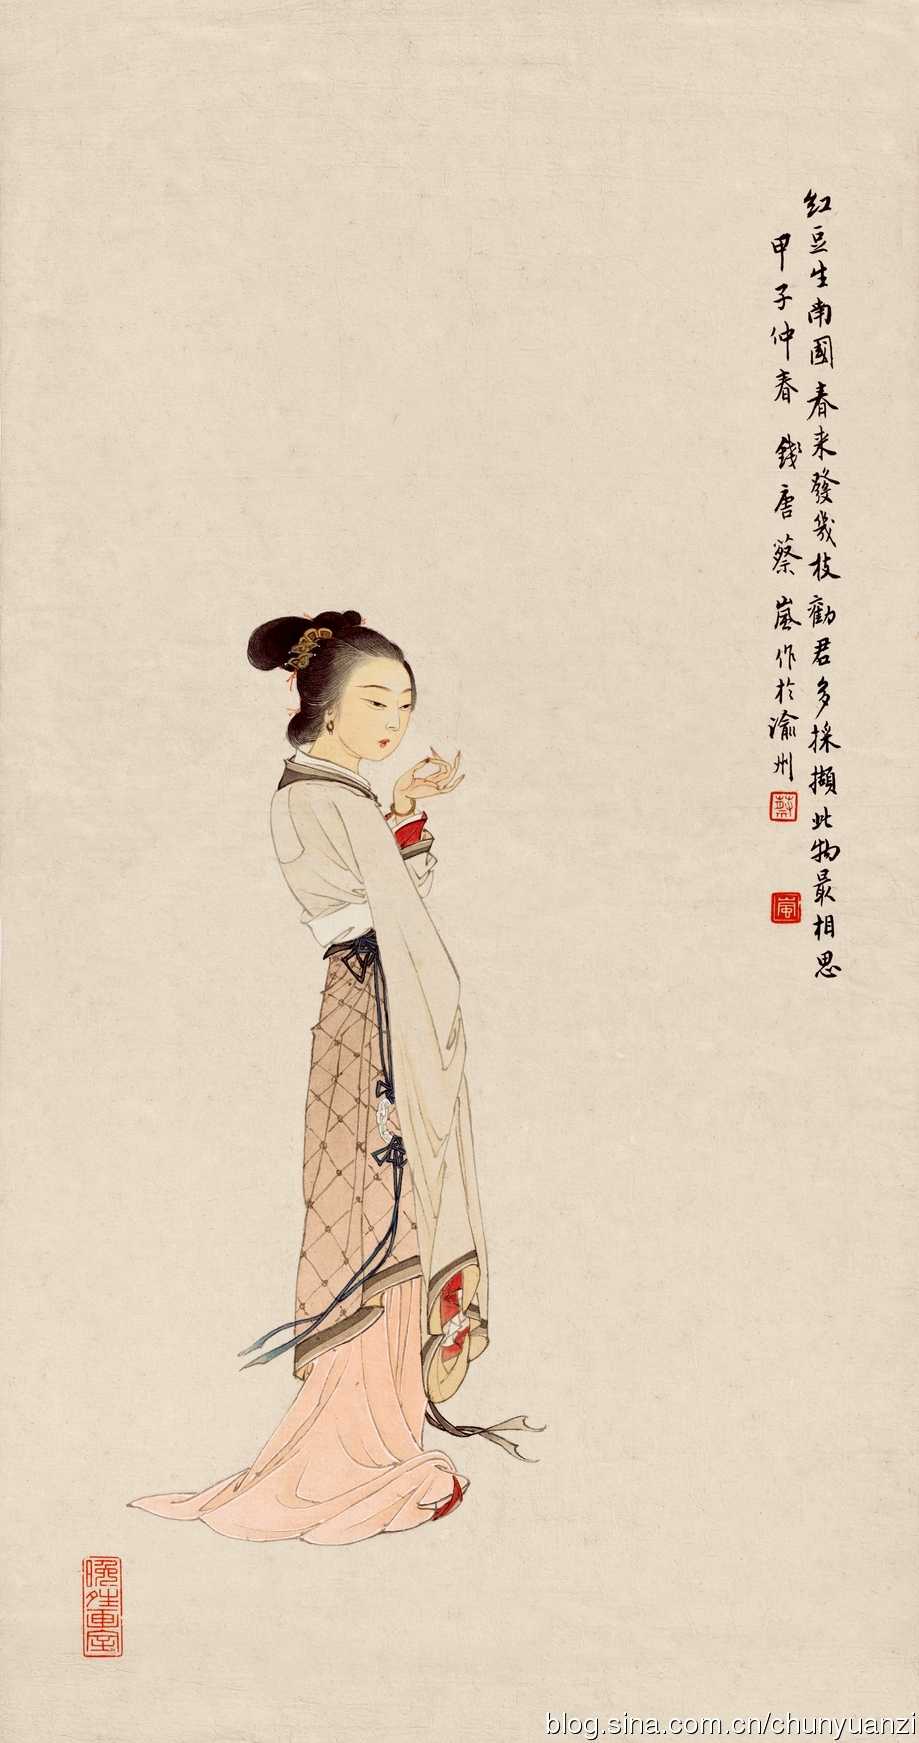 紅豆生南國春来發幾枝勸君多採擷此物最相思
甲子仲春 錢唐蔡嵐作於渝州
蔡
嵐
晚生畫室
blog.sina.com.cn/chunyuanzi